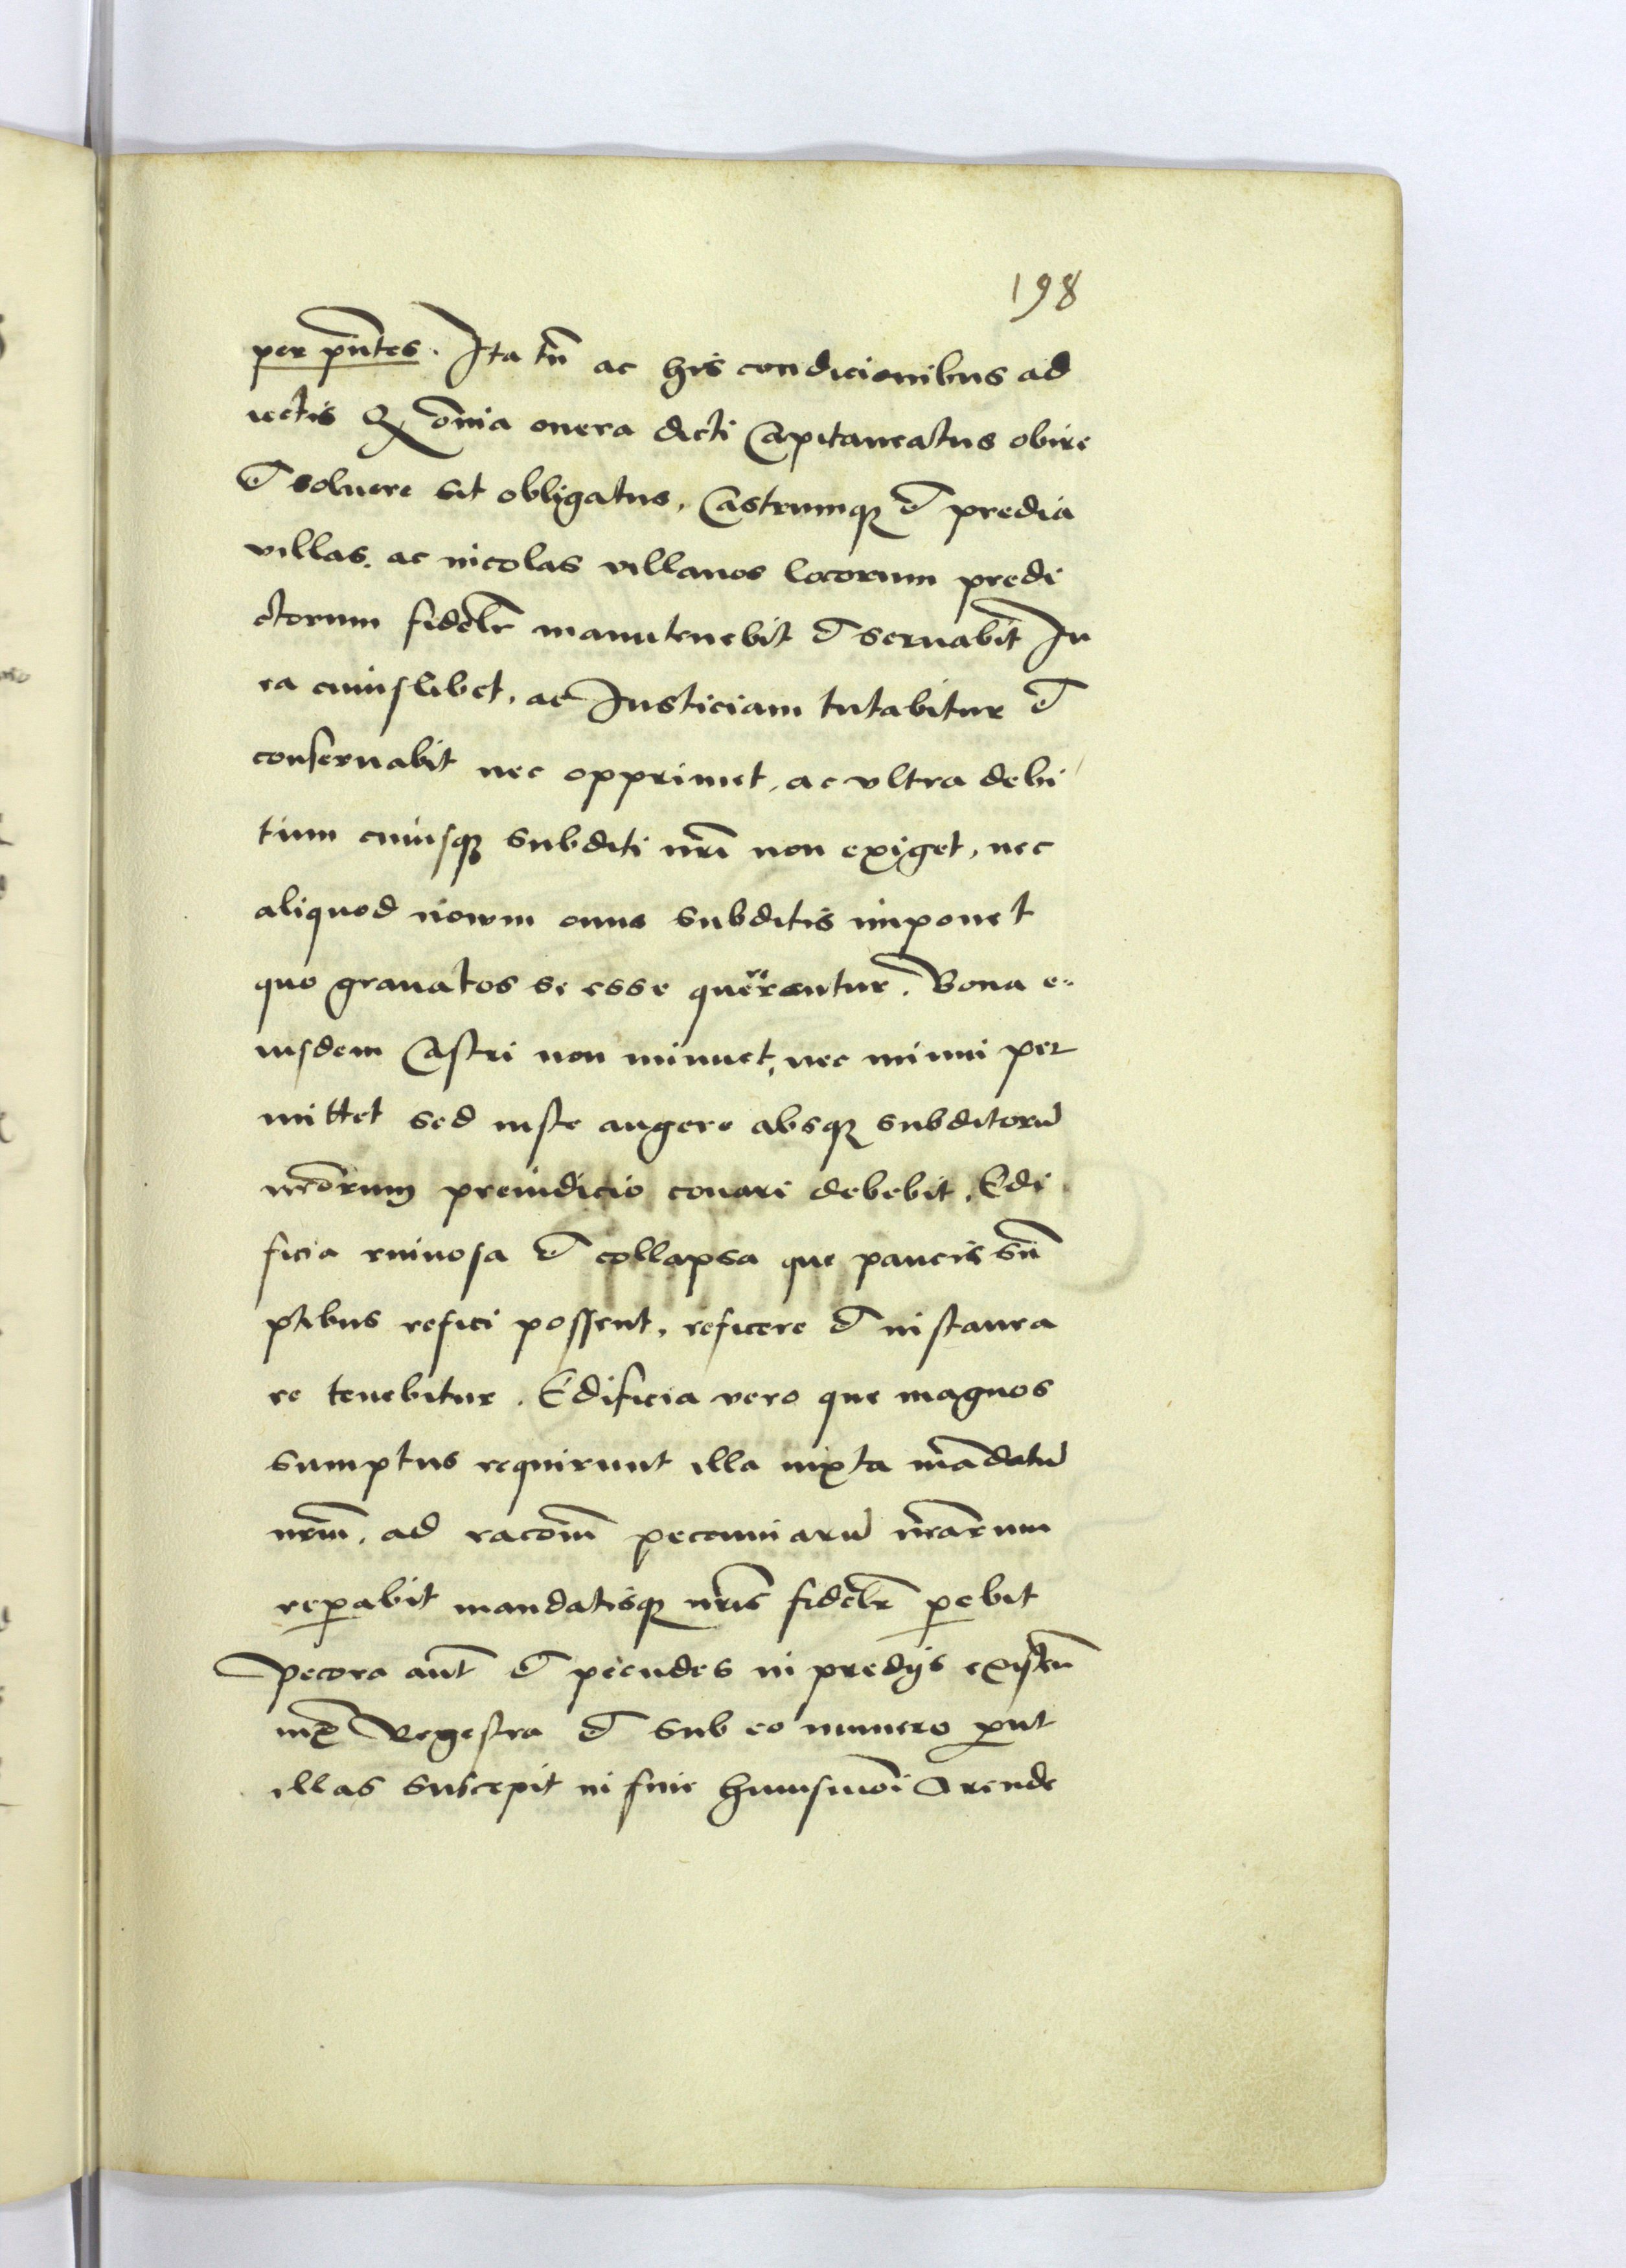 198
per pñtes. Ita tñ ac his condicionibus ad
iectis Qx oñia onera dicti Capitaneatus obire
et soluere sit obligatus, Castrumqȝ et predia
villas, ac incolas villanos locorum predi
ctorum fidelr̃ manutenebit et seruabit Iu
ra cuiuslibet, ac Iusticiam tutabitur et
conseruabit nec opprimet, ac vltra debi
tum cuiusqȝ subditi nr̃i non exiget, nec
aliquod nowm onus subditis imponet
quo grauatos se esse quererentur. Bona e-
iusdem Castri non minuet, nec minui per
mittet sed iuste augere absqȝ subditorũ
nr̃orum preiudicio conari debebit. Edi
ficia ruinosa et collapsa que paucis sũ
ptibus refici possent, reficere et instaura
re tenebitur. Edificia vero que magnos
sumptus requirunt illa iuxta mandatũ
nr̃m, ad racom̃ pecuniarũ nr̃arum
rep̱abit mandatisqȝ nr̃is fidelr̃ p̱ebit
Pecora aut̃ et pecudes in predijs existeñ
iux̃ Regestra et sub eo numero p̱ut
illas suscepit in fine huiusmõi Arende